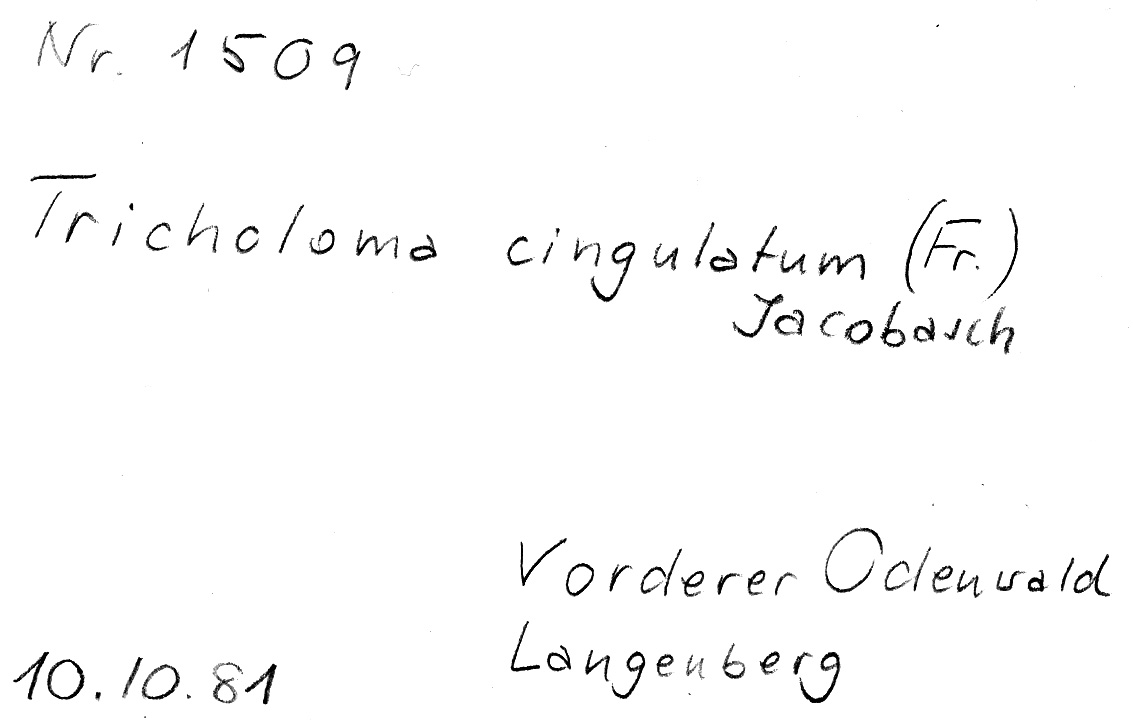 Nr. 1509
Tricholoma cingulatum (Fr.)
Jacobasch
Vorderer Odenwald
Langenberg
10.10.81